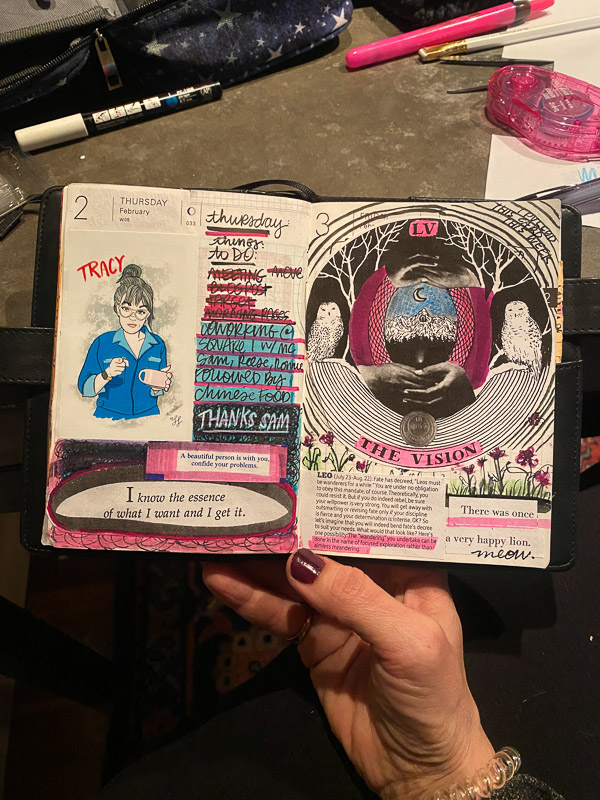 2
THURSDAY
February
w05
033
TRACY
thursday:
things:
to DO:
MEETING MOVE
BLOGPOST
TARGET
MORNING PAGES
COWORKING @
SQUARE 1 W/ MG
Sam, Reese, Ronnie
Followed By
Chinese FOOD
THANKS SAM
A beautiful person is with you,
confide your problems.
I know the essence
of what I want and I get it.
3
LV
I PULLED
THIS CARD
THIS WEEK
THE VISION
LEO (July 23-Aug. 22): Fate has decreed, "Leos must
be wanderers for a while." You are under no obligation
to obey this mandate, of course. Theoretically, you
could resist it. But if you do indeed rebel, be sure
your willpower is very strong. You will get away with
outsmarting or revising fate only if your discipline
is fierce and your determination is intense. OK? So
let's imagine that you will indeed bend fate's decree
to suit your needs. What would that look like? Here's
one possibility: The "wandering" you undertake can be
done in the name of focused exploration rather than
aimless meandering.
There was once
a very happy lion.
meow.